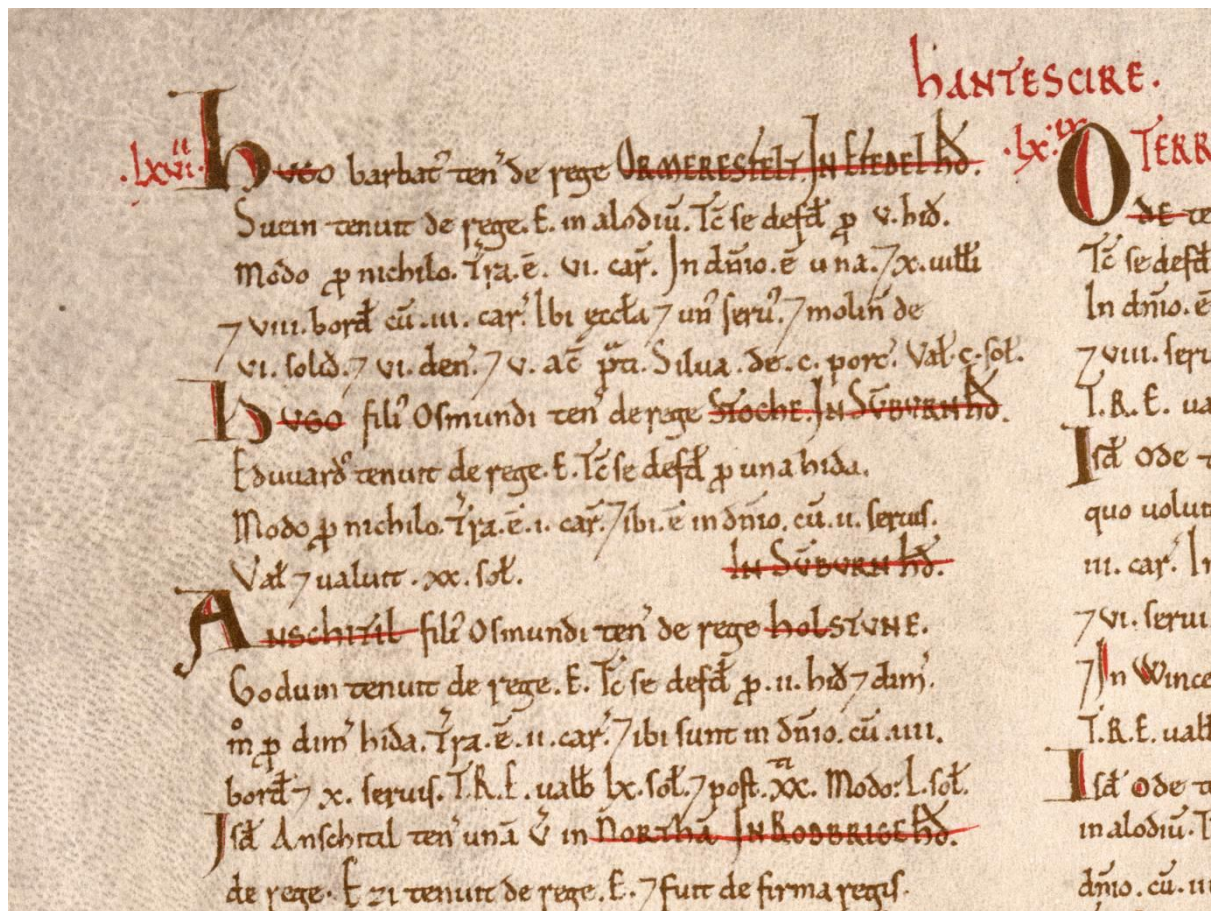 HANTESCIRE.
.lxvi.ii. HUGO barbat' ten' de rege ORMERESTELT. IN EFEDEL HD̄.
Suein tenuit de rege. E. in alodiū. Tc̄ se defd̄ p̱ v. hid̄.
Modo p̱ nichilo. Tr̄a. ē. vi. car̄. In dn̄io. ē una. ⁊ x. uilłi
⁊ viii. bord̄ cū .iii. car̄. Ibi æccła ⁊ un' seru'. ⁊ molin̄ de
vi. solid̄. ⁊ vi. den̄. ⁊ v. ac̄ p̄ti. Silua .de .c. porc'. Val̄. c. sol̄.
HUGO fili' Osmundi ten' de rege STOCHE. IN SŪBURN HD̄.
Eduuard' tenuit de rege. E. Tc̄ se defd̄ p̱ una hida.
Modo p̱ nichilo. Tr̄a. ē. i. car̄. ⁊ ibi. ē in dn̄io. cū. ii. seruis.
Val̄ ⁊ ualuit .xx. sol̄.
IN SŪBURN HD̄.
ANSCHITIL fili' Osmundi ten' de rege HOLSTUNE.
Goduin tenuit de rege. E. Tc̄ se defd̄ p̱ .ii. hid̄ ⁊ dim̄.
m̊ p̱ dim̄ hida. Tr̄a. ē. ii. car̄. ⁊ ibi sunt in dn̄io. cū. iiii.
bord̄ ⁊ x. seruis. T.R.E. ualb̄ lx. sol̄. ⁊ post .xx.ti Modo: L. sol̄.
Isd̄ Anschitil ten' unā v̄ in NORTHĀ IN RODBRIGE HD̄.
de rege. Ezi tenuit de rege. E. ⁊ fuit de firma regis.
.lx.ix. TERR
ODE te
Tc̄ se defd̄
In dn̄io. ē
⁊ viii. seru
T.R.E. ua
Isd̄ Ode t
quo uoluit
iii. car̄. In
⁊ vi. serui
⁊ In Wince
T.R.E. ualb̄
Isd̄ Ode te
in alodiū. T
dn̄io. cū. iii